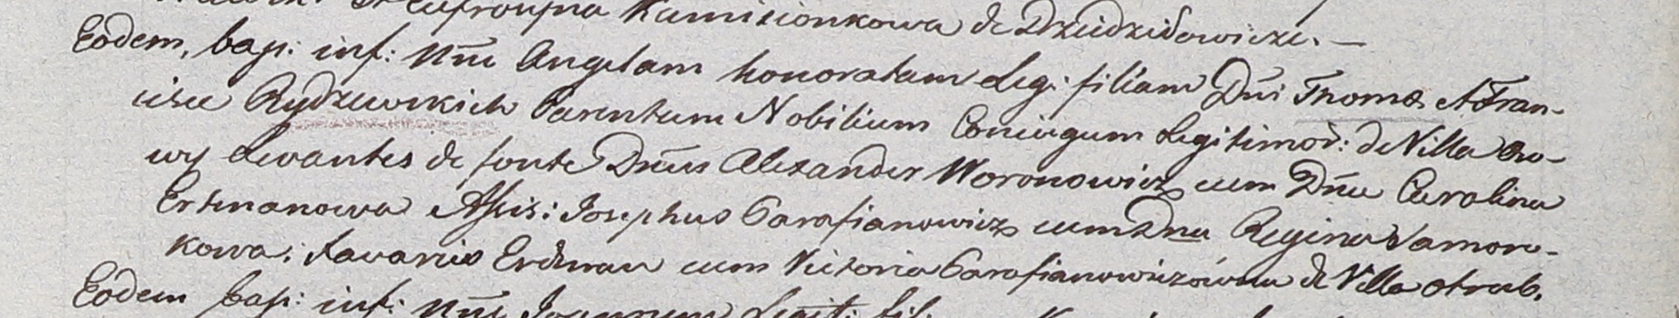 Eufrozyna Kamisionkowa de Dziedzidowicze. —
Eodem, bap: inf: Nnē Angelam honoratam Legi: filiam Dni Thomæ et Fran-
cisce Rydzewskich Parentum Nobilium Coniugum Legitimor: de Villa
wy Levantes de fonte Dnus Alexander Woronowicz cum Dna Carolina
Erdmanowa Assis: Josephus Parafianowicz cum Dna Regina Jamoro-
kowa. Xaverius Erdman cum Victoria Parafianowiczówna de Villa otrub.
Eodem bap: inf: Nnē Joannem Legit: fil: